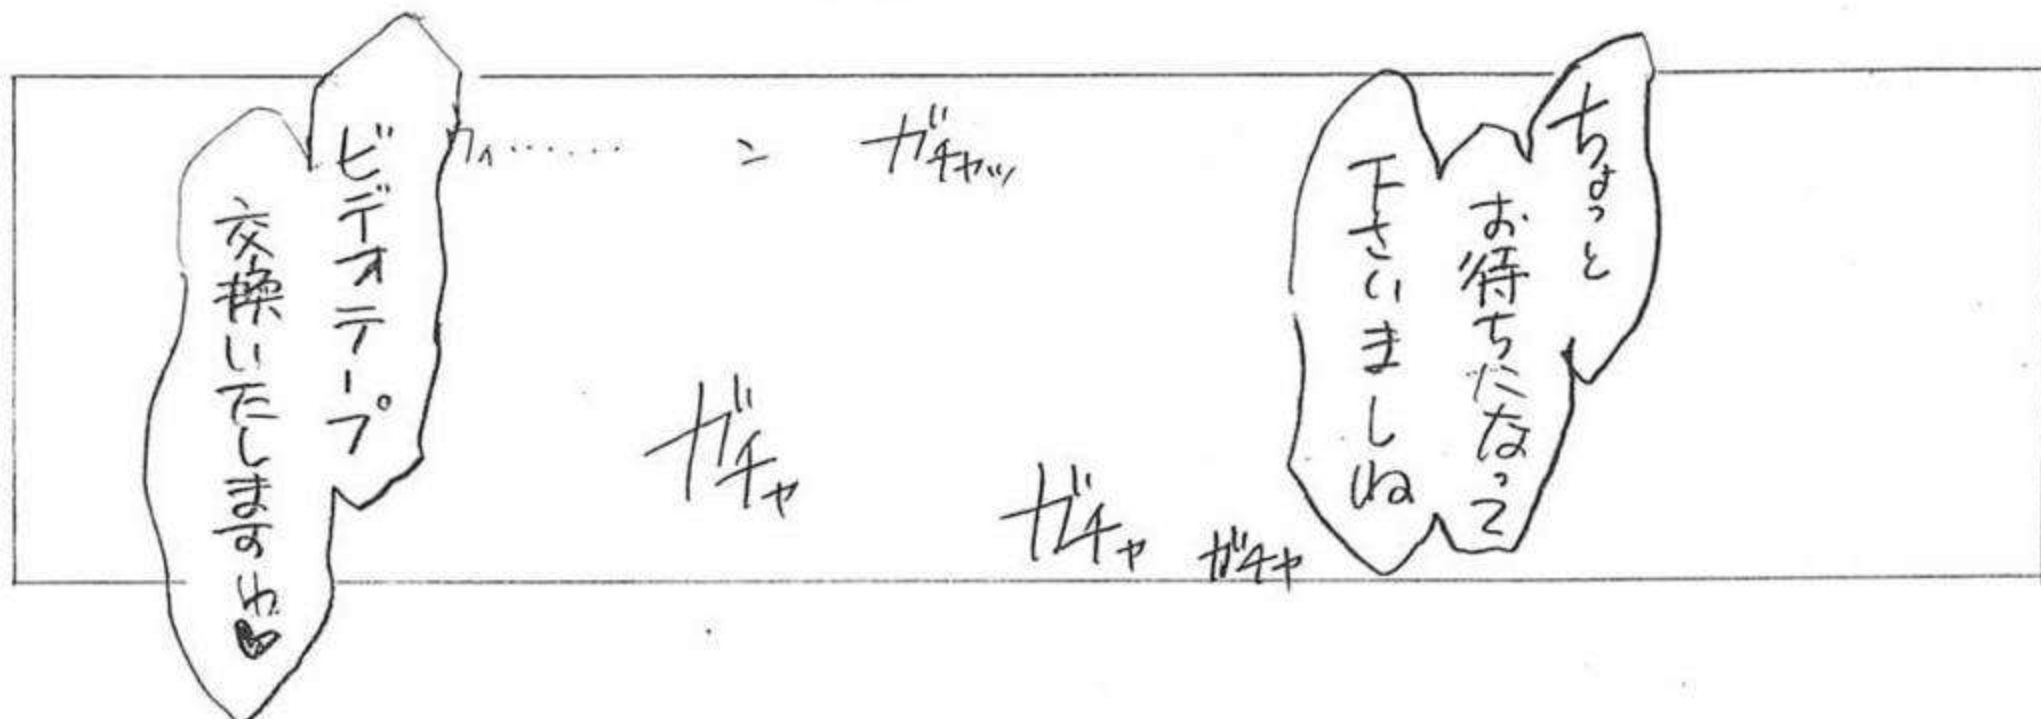 ちょっと
お待ちになって
下さいましね
ガチャ
ガチャ
ガチャ
ガチャッ
ビデオテープ
交換いたしますわ♥